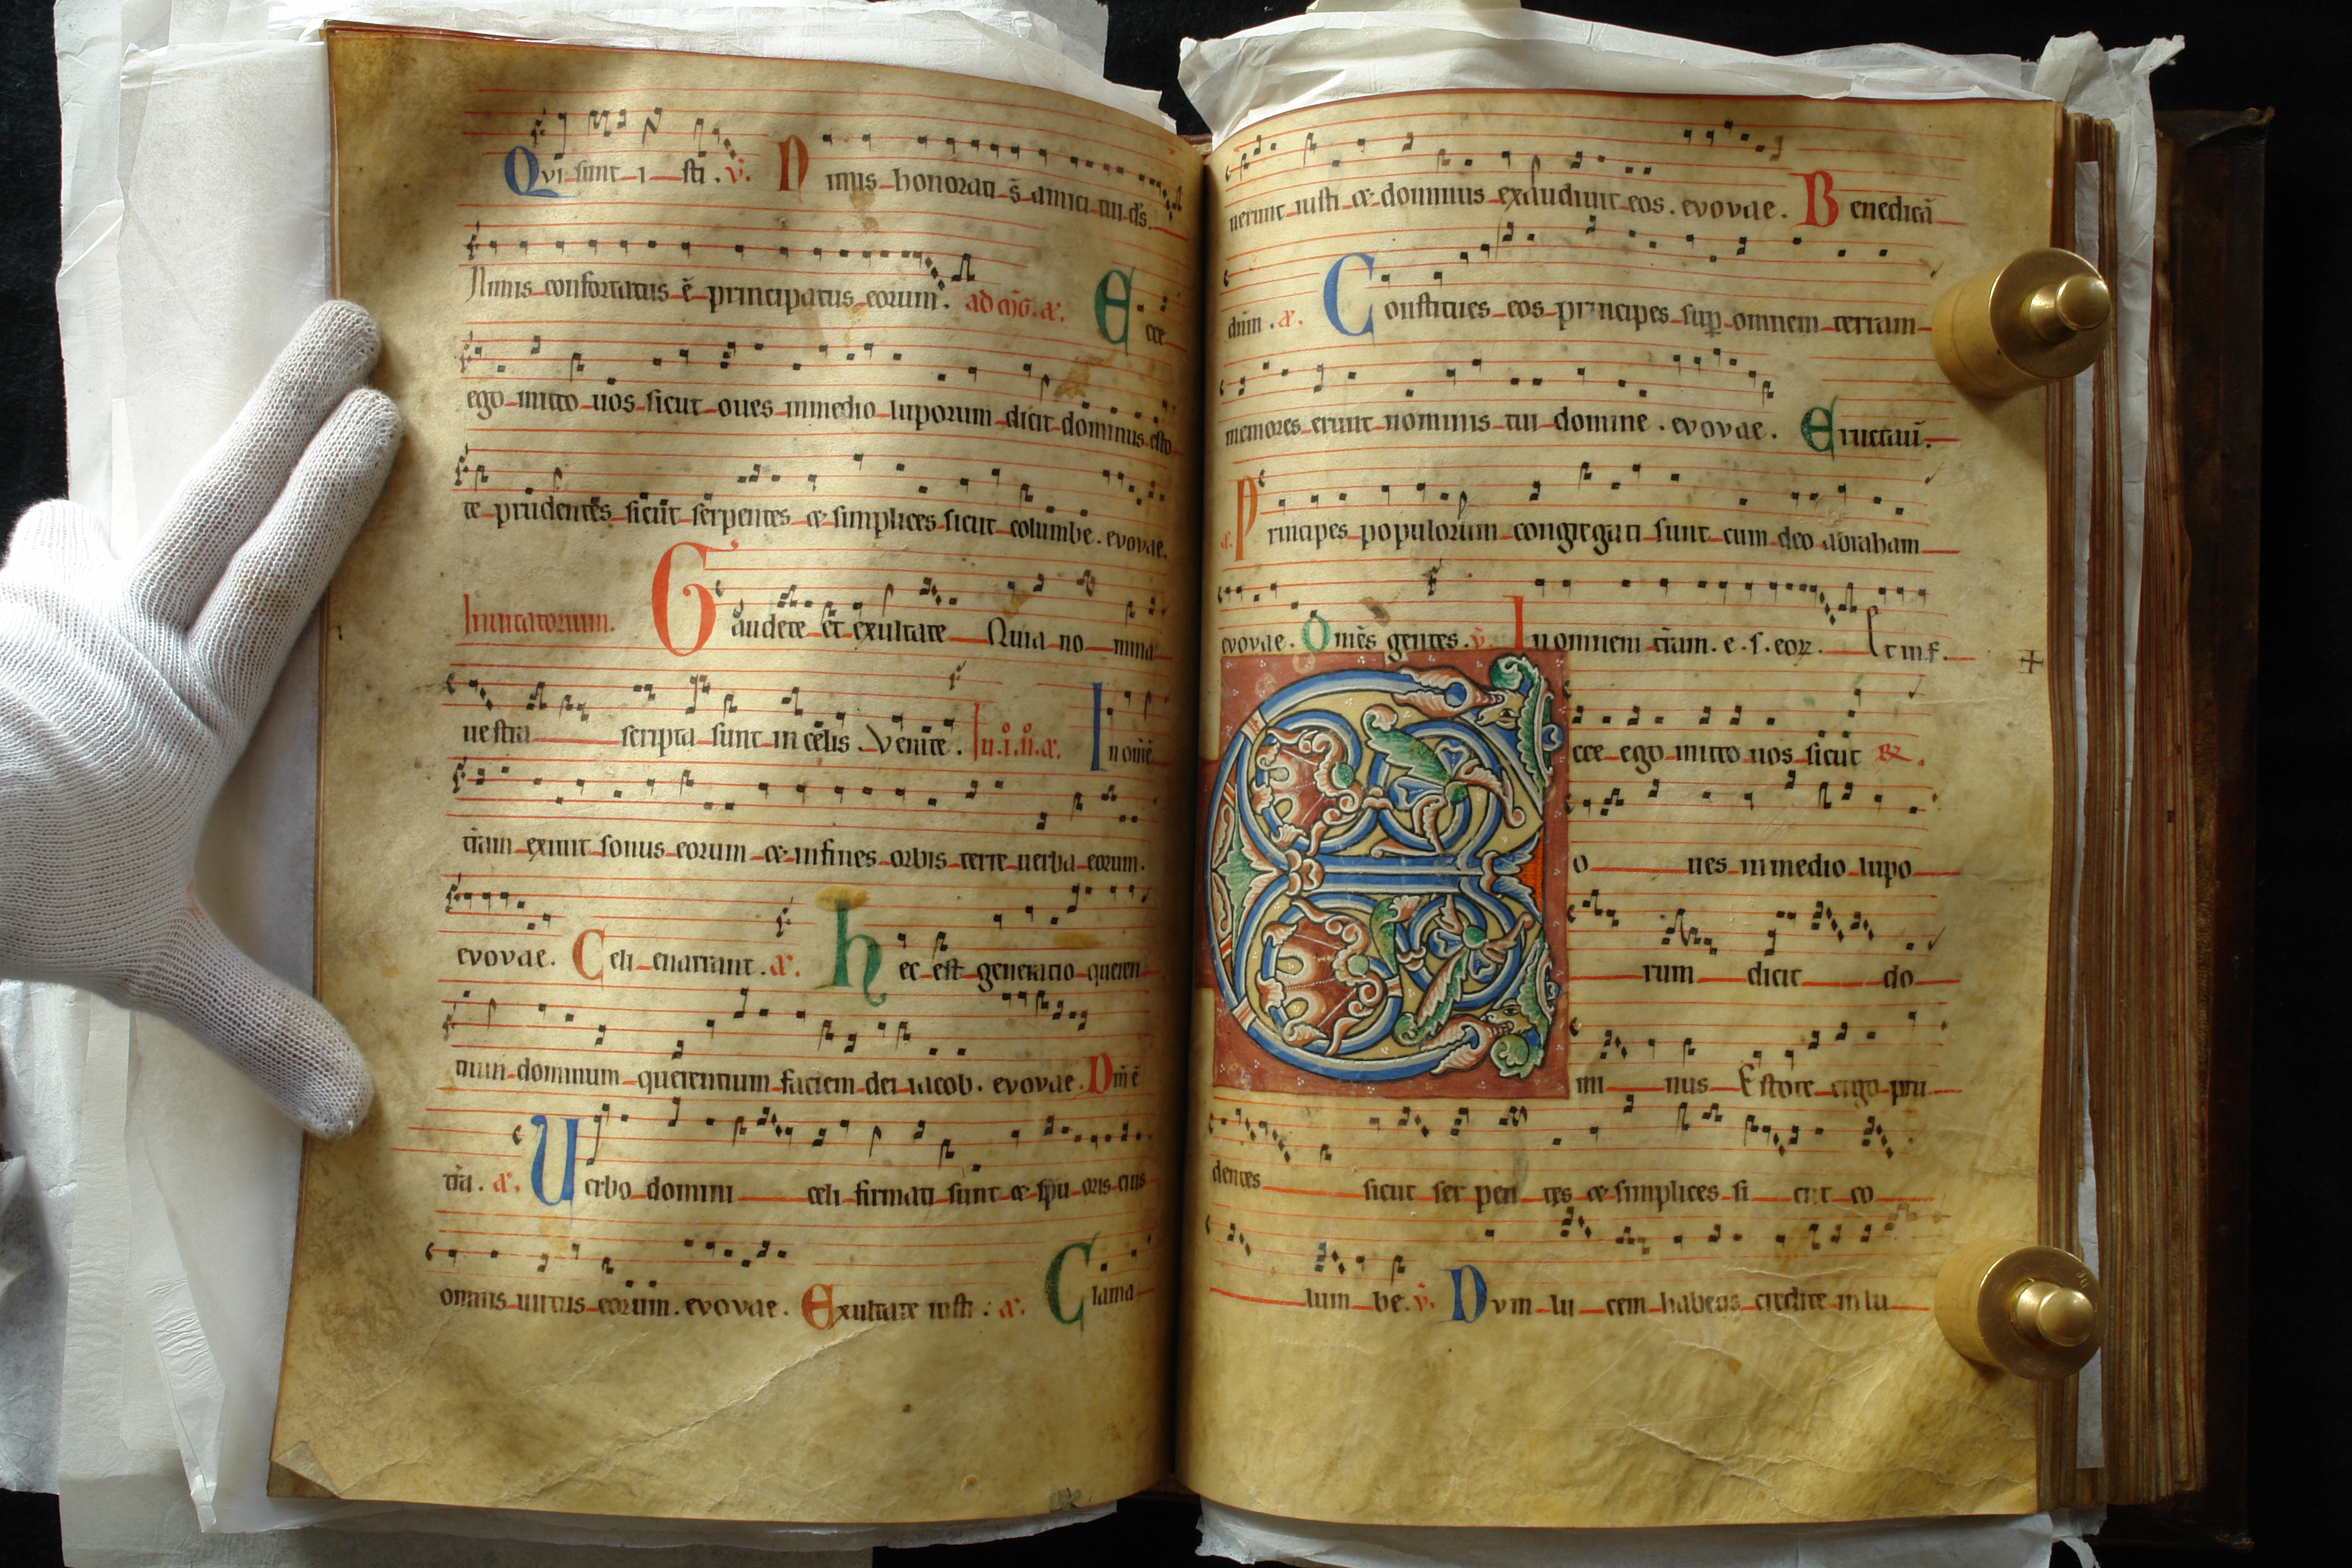 Qui sunt i sti. v̄. Nimis honorati s̄ amici tui ds̄.
Nimis confortatus ē principatus eorum. ad mg̅. a. Ecce
ego mitto uos sicut oues inmedio luporum dicit dominus esto
te prudentes sicut serpentes & simplices sicut columbe. evovae.
Inuitatorium. Gaudete et exultate Quia no mina
uestra scripta sunt in celis. Venite. In.i.n̊.a. In omē
trām exiuit sonus eorum & infines orbis terre uerba eorum.
evovae. Celi enarrant. a. Hec est generatio queren
tium dominum querentium faciem dei iacob. evovae. Dn̄i ē
trā. a. Verbo domini celi firmati sunt & spū oris eius
omnis uirtus eorum. evovae. Exultate iusti. a. Clama
uerunt iusti & dominus exaudiuit eos. evovae. Benedicā
dn̄m. a. Constitues eos principes sup omnem terram
memores erunt nominis tui domine. evovae. Eructauī.
a. Principes populorum congregati sunt cum deo abraham
evovae. Omēs gentes. v̄. In omnem trām. e. s. eoꝝ. Et in f.
Ecce ego mitto uos sicut ℟.
o ues inmedio lupo
rum dicit do
mi nus Estote ergo pru
dentes sicut ser pen tes & simplices si cut co
lum be. v̄. Dum lu cem habetis credite in lu